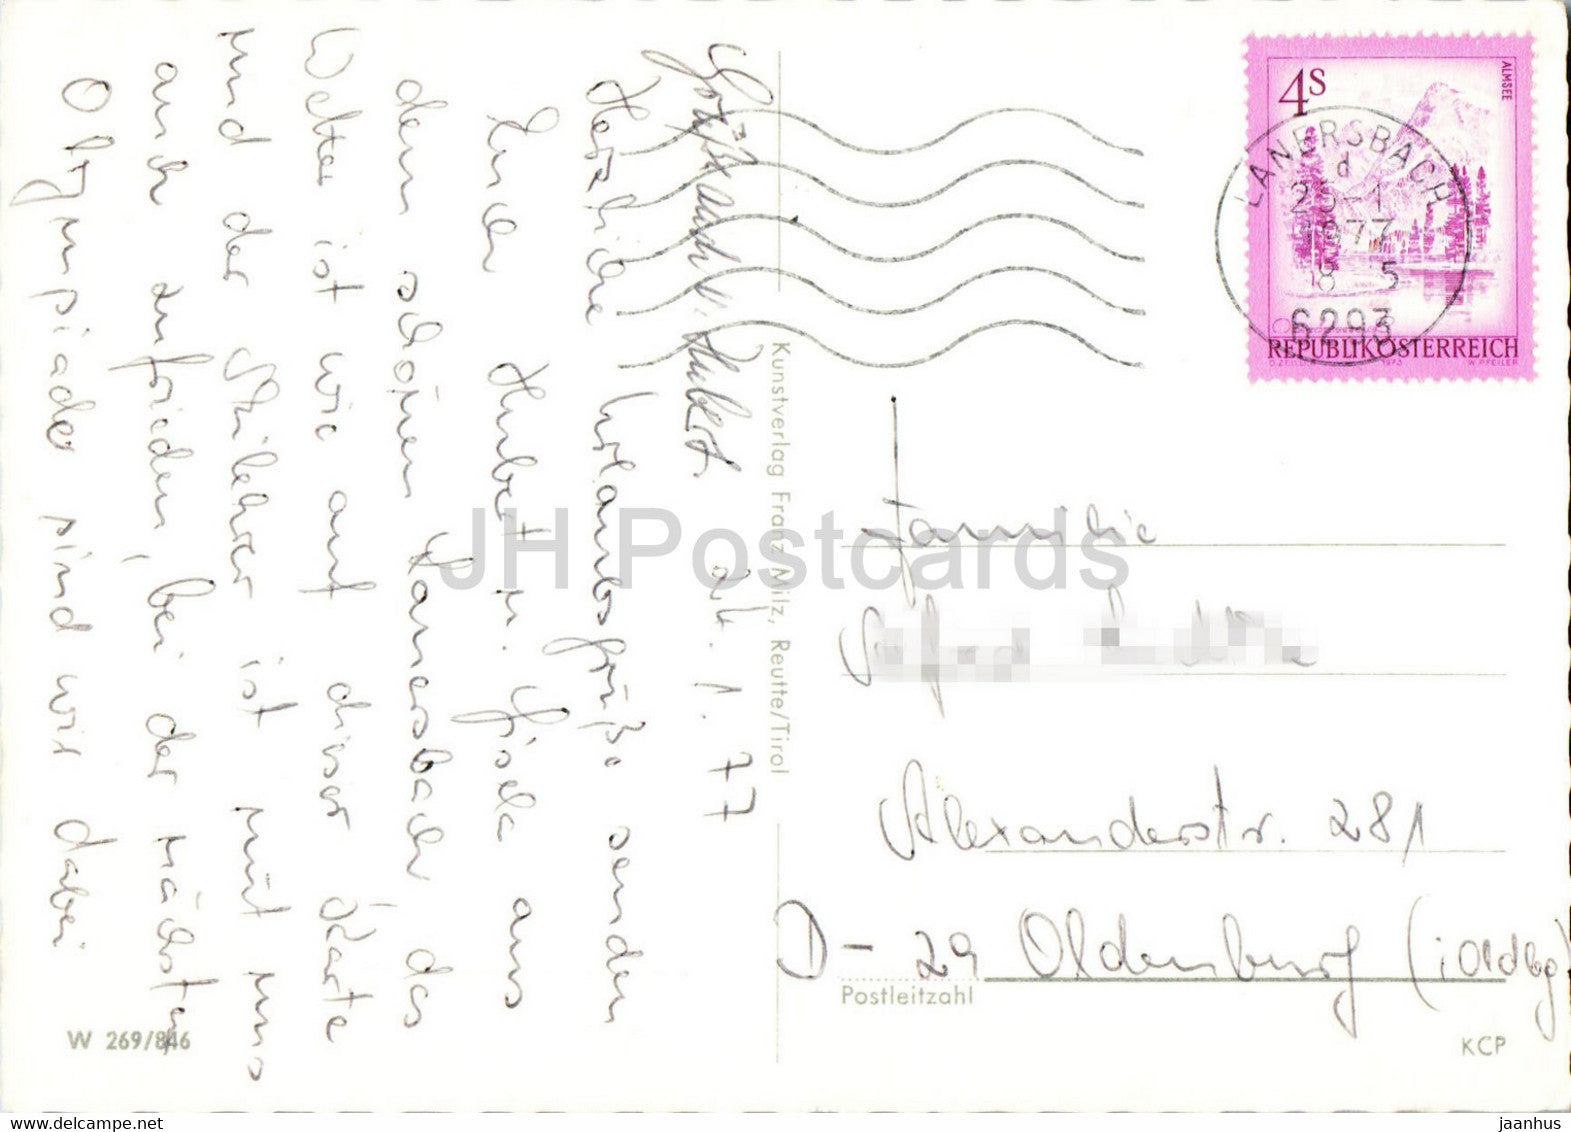 24. 1. 77
Herzliche Urlaubsgrüße senden
Euer Hubert u. Gisela aus
dem schönen Lanersbach das
Wetter ist wie auf dieser Karte
und der Skilehrer ist mit uns
auch zufrieden, bei der nächsten
Olympiade sind wir dabei
Hubert.
Kunstverlag Franz Milz, Reutte/Tirol
W 269/846
4S
ALMSEE
REPUBLIK ÖSTERREICH
1973 W. PFEILER
LANERSBACH
d
1977
6293
Familie
Alexanderstr. 281
D-29 Oldenburg (i Oldbg)
Postleitzahl
KCP
JH Postcards
www.delcampe.net
jaanhus